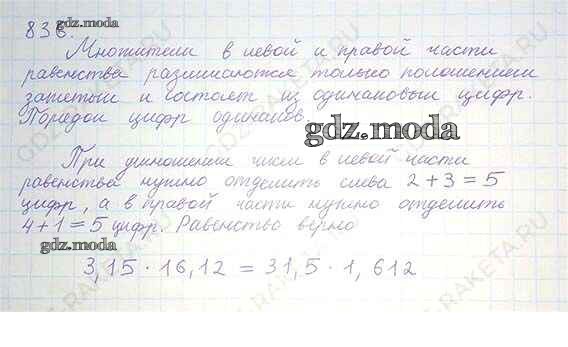 836.
gdz.moda
Множители в левой и правой части
равенства различаются только положением
запетый и состоят из одинаковый цифр.
Порядок цифр одинаков.
gdz.moda
При умножении чисел в левой части
равенства нужно отделить слева 2 + 3 = 5
цифр, а в правой части нужно отделить
4 + 1 = 5 цифр. Равенство верно
gdz.moda
3,15 · 16,12 = 31,5 · 1,612